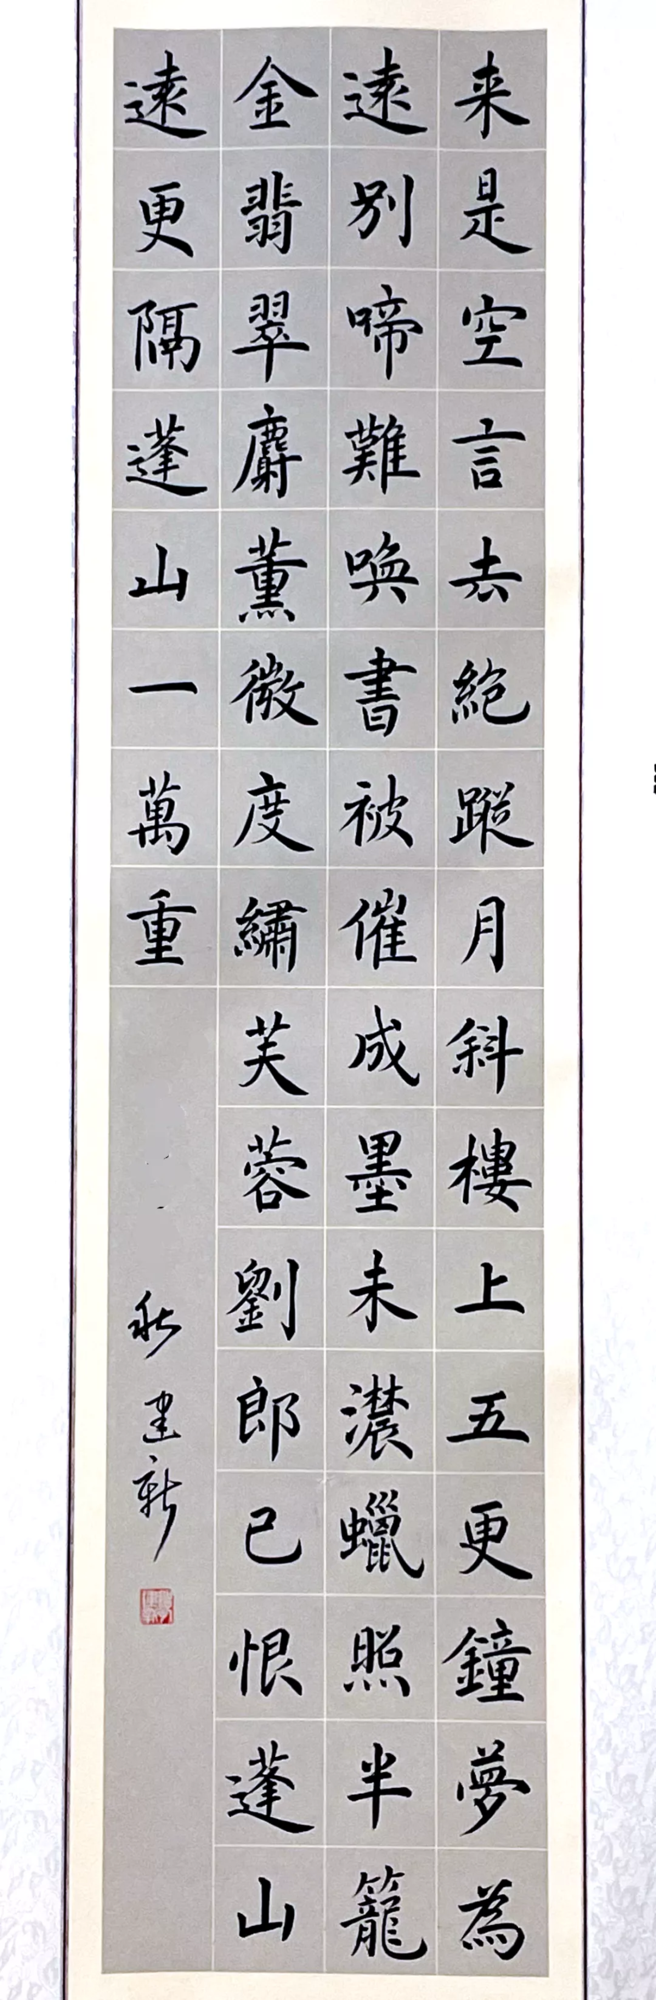 来是空言去絶蹤月斜樓上五更鐘夢為
遠別啼難喚書被催成墨未濃蠟照半籠
金翡翠麝薰微度繡芙蓉劉郎已恨蓬山
遠更隔蓬山一萬重
建新